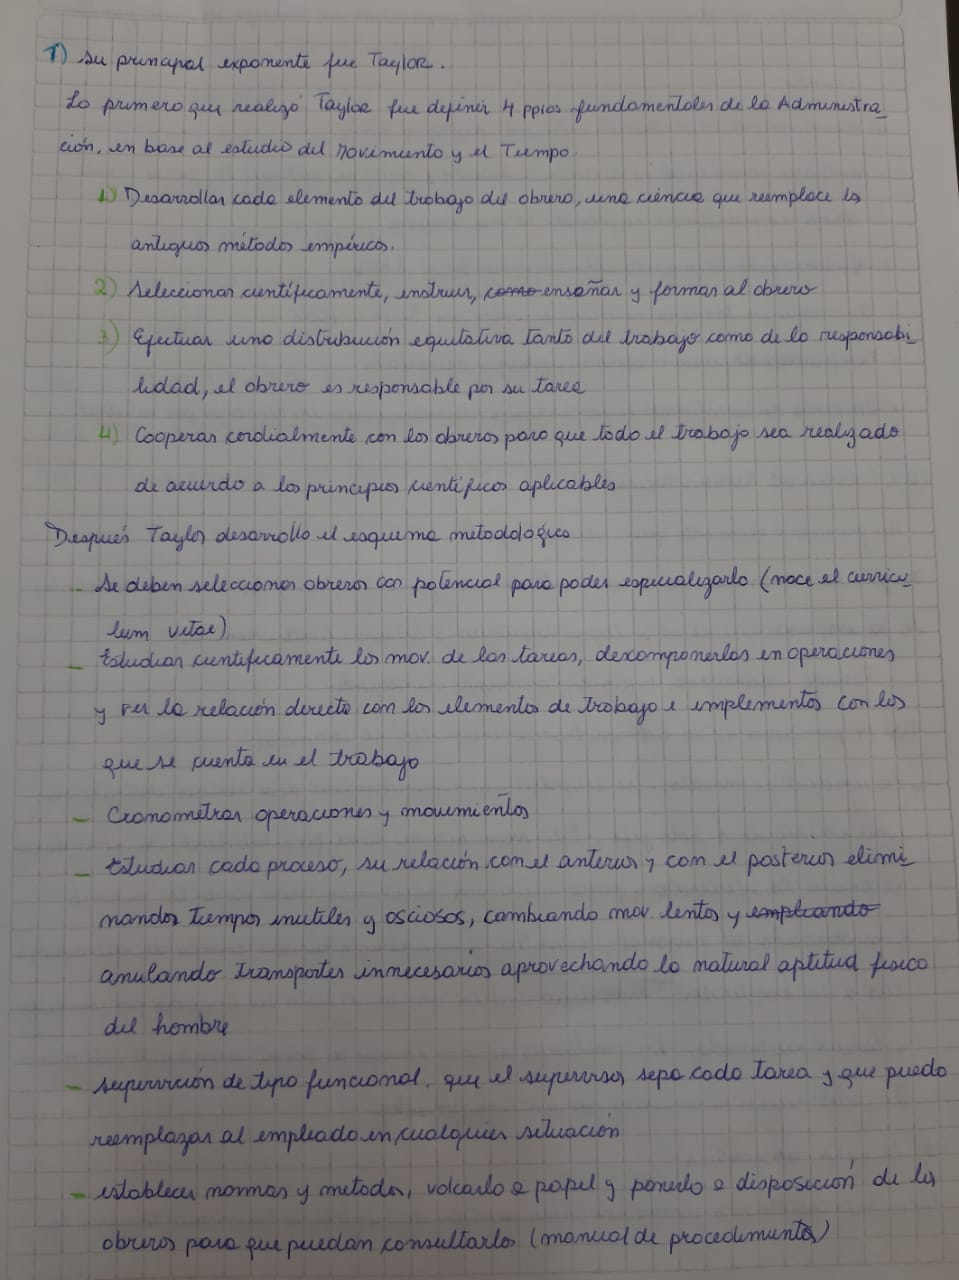 1) Su principal exponente fue Taylor.
Lo primero que realizó Taylor fue definir 4 ppios fundamentales de la Administra_
ción, en base al estudio del Movimiento y el Tiempo.
1) Desarrollar cada elemento del trabajo del obrero, una ciencia que reemplace los
antiguos métodos empíricos.
2) Seleccionar científicamente, instruir, como enseñar y formar al obrero
3) Efectuar una distribución equitativa tanto del trabajo como de la responsabi_
lidad, el obrero es responsable por su tarea
4) Cooperar cordialmente con los obreros para que todo el trabajo sea realizado
de acuerdo a los principios científicos aplicables
Después Taylor desarrollo el esquema metodológico
- Se deben seleccionar obreros con potencial para poder especializarlo (nace el curricu_
lum vitae)
- Estudiar cientificamente los mov. de las tareas, descomponerlas en operaciones
y ver la relación directa con los elementos de trabajo e implementos con los
que se cuenta en el trabajo
- Cronometrar operaciones y movimientos
- Estudiar cada proceso, su relación con el anterior y con el posterior elimi_
nandos tiempos inutiles y osciosos, cambiando mov. lentos y empleando
anulando transportes innecesarios aprovechando la natural aptitud fisica
del hombre
- supervición de tipo funcional, que el supervisor sepa cada tarea y que pueda
reemplazar al empleado en cualquier situación
- establecer normas y metodos, volcarlo a papel y ponerlo a disposición de los
obreros para que puedan consultarlos (manual de procedimientos)